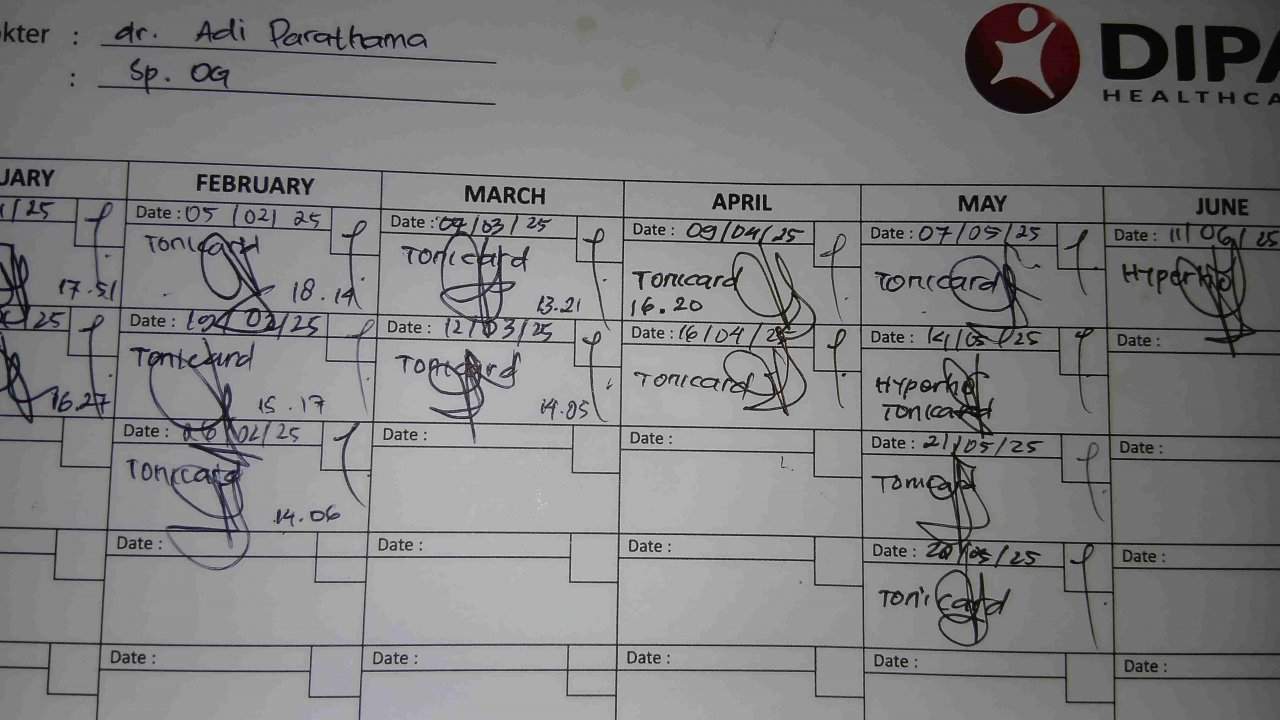 kter : dr. Adi Parathama
: Sp. OG
DIPA
HEALTHCA
UARY FEBRUARY MARCH APRIL MAY JUNE
/25 Date : 05 / 02 / 25 Date : /03/25 Date : 09/04/25 Date : 07/05/25 Date : 11/06/25
Tonicard Tonicard Tonicard Tonicard Hyperhol
17.51 18.14 13.21 16.20
/25 Date : /02/25 Date : 12/03/25 Date : 16/04/25 Date : 14/05/25 Date :
Tonicard Tonicard Tonicard Hyperhol
Tonicard
16.27 15.17 14.05
Date : /02/25 Date : Date : Date : 21/05/25 Date :
Tonicard Tonicard
14.06
Date : Date : Date : Date : /05/25 Date :
Tonicard
Date : Date : Date : Date : Date :